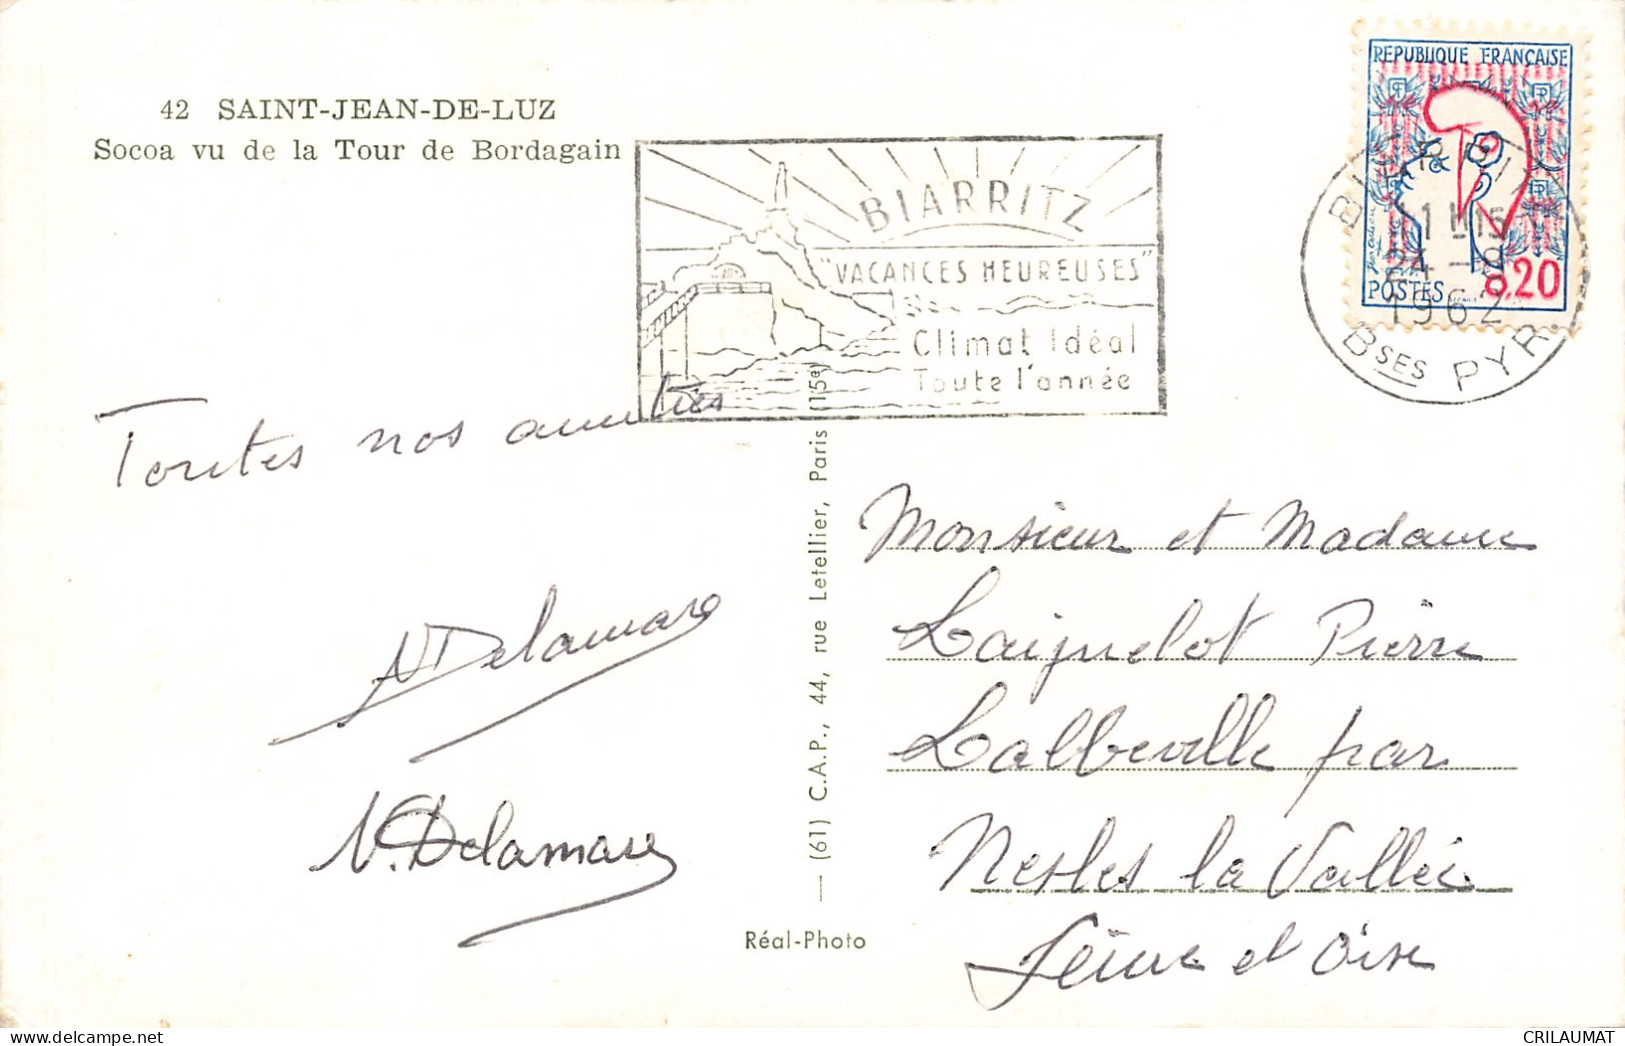 42 SAINT-JEAN-DE-LUZ
Socoa vu de la Tour de Bordagain
BIARRITZ
"VACANCES HEUREUSES"
Climat Idéal
Toute l'année
REPUBLIQUE FRANÇAISE
POSTES 0,20
BIARRITZ
11H15
24-8
1962
BSES PYR
Toutes nos amitiés
N Delamare
N. Delamare
(61) C.A.P., 44, rue Letellier, Paris (15e)
Réal-Photo
Monsieur et Madame
Laignelot Pierre
Labbeville par
Nesles la Vallée
Seine et Oise
CRILAUMAT